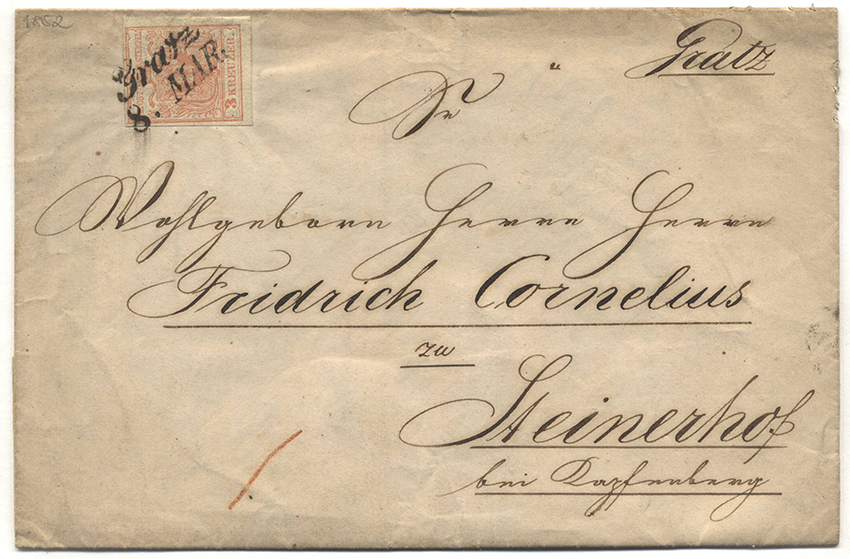 1852
Gratz
8. MAR.
3 KREUZER
Gratz
Sr
Wohlgeborn Herrn Herrn
Fridrich Cornelius
zu
Steinerhof
bei Kapfenberg